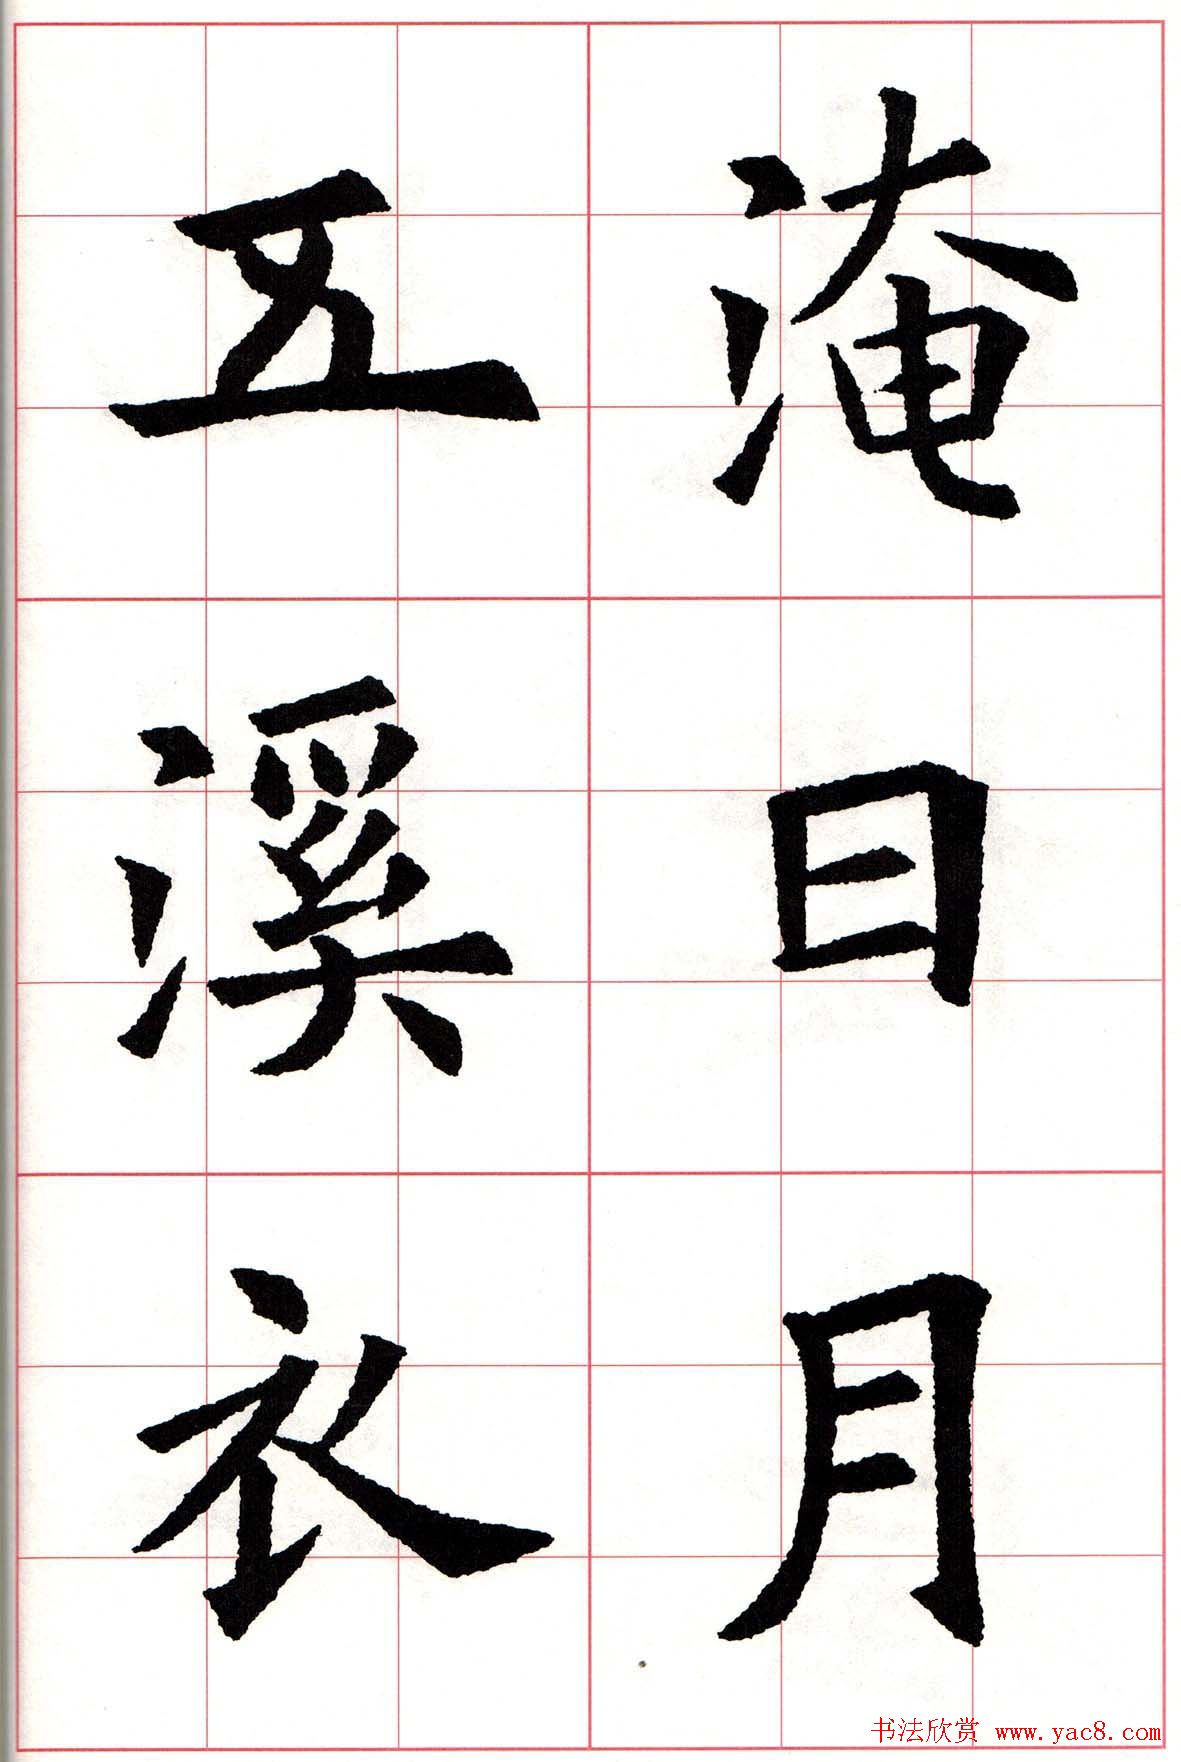 淹日月
五溪衣
书法欣赏 www.yac8.com